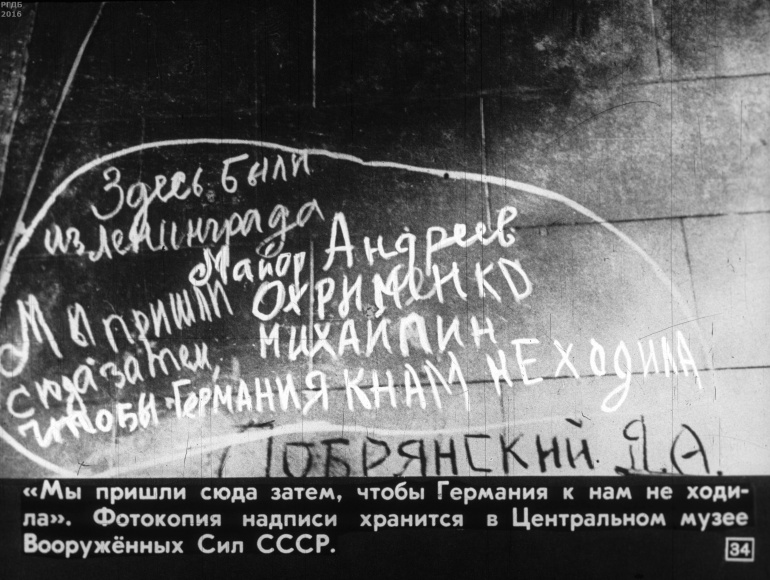 РГДБ
2016
Здесь были
из Ленинграда
Майор Андреев
ОХРИМЕНКО
МИХАЙЛИН
Мы пришли
сюда затем,
чтобы ГЕРМАНИЯ К НАМ НЕ ХОДИЛА
ПОБРЯНСКИЙ. Я.А.
«Мы пришли сюда затем, чтобы Германия к нам не ходи-
ла». Фотокопия надписи хранится в Центральном музее
Вооружённых Сил СССР.
34